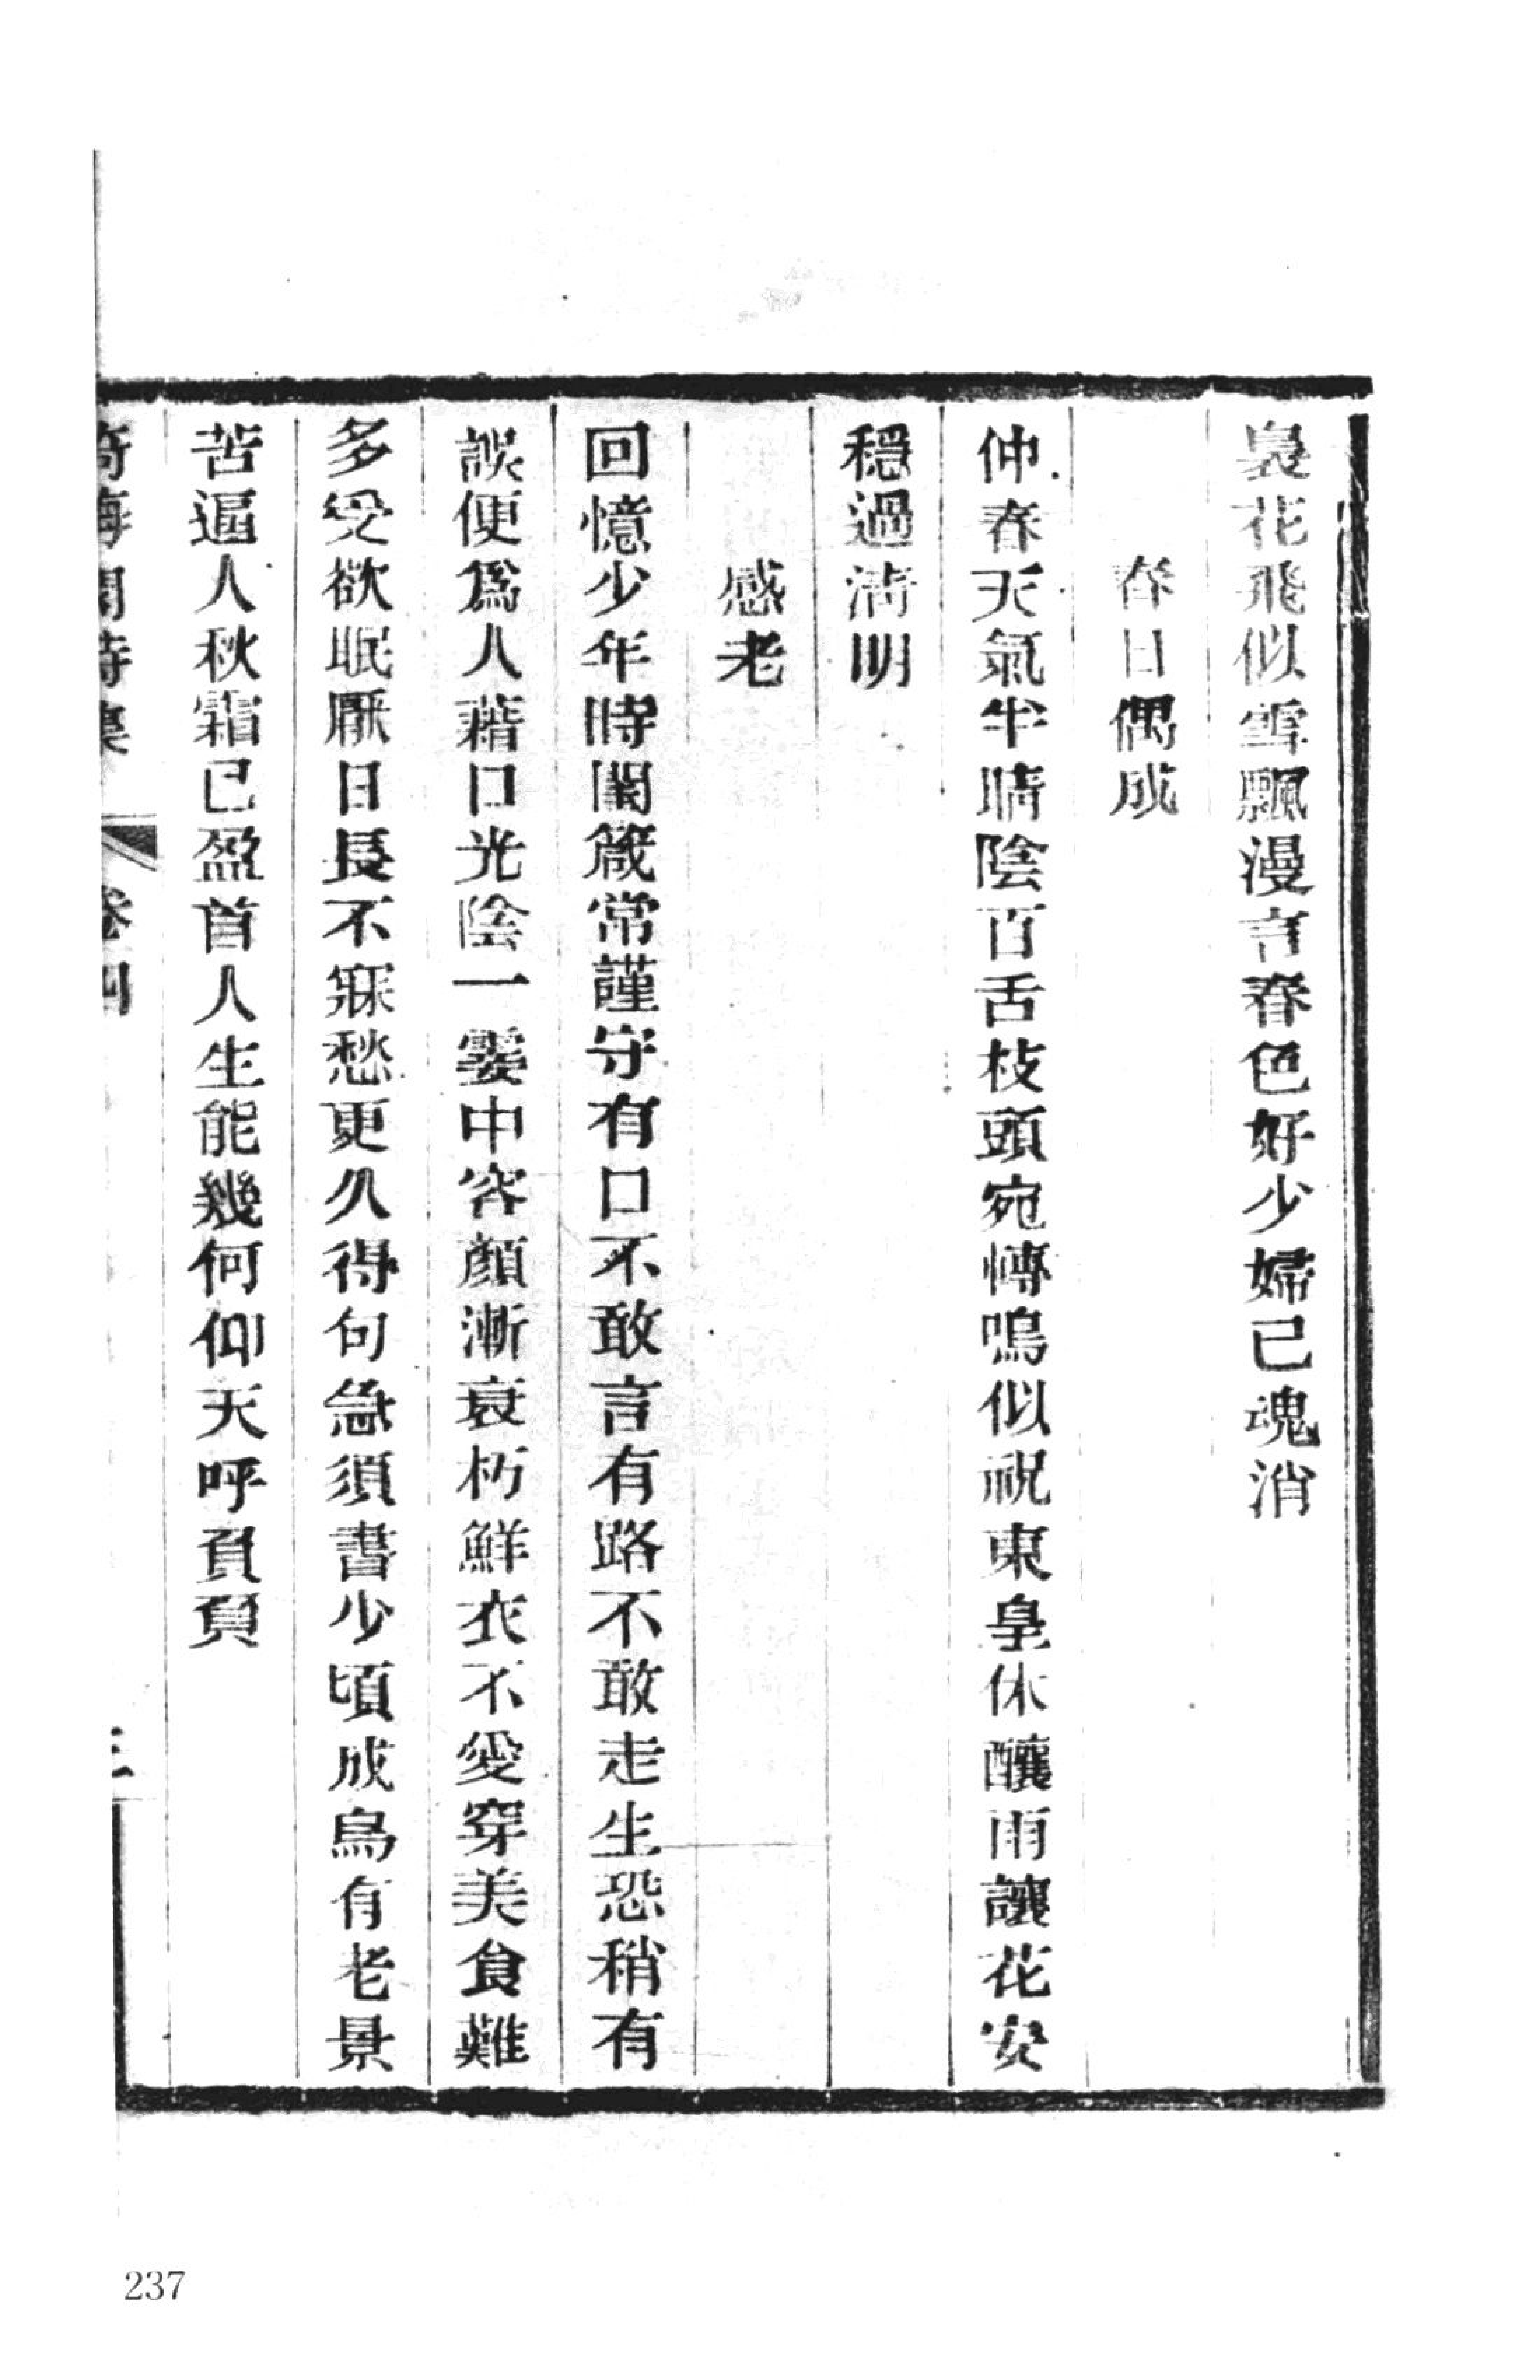 裊花飛似雪飄漫言春色好少婦已魂消
春日偶成
仲春天氣半晴陰百舌枝頭宛轉鳴似祝東皇休釀雨讓花安
穩過淸明
感老
回憶少年時閨箴常謹守有口不敢言有路不敢走生恐稍有
誤便爲人藉口光陰一霎中容顏漸衰朽鮮衣不愛穿美食難
多受欲眠厭日長不寐愁更久得句急須書少頃成烏有老景
苦逼人秋霜已盈首人生能幾何仰天呼負負
詩集 卷四
237